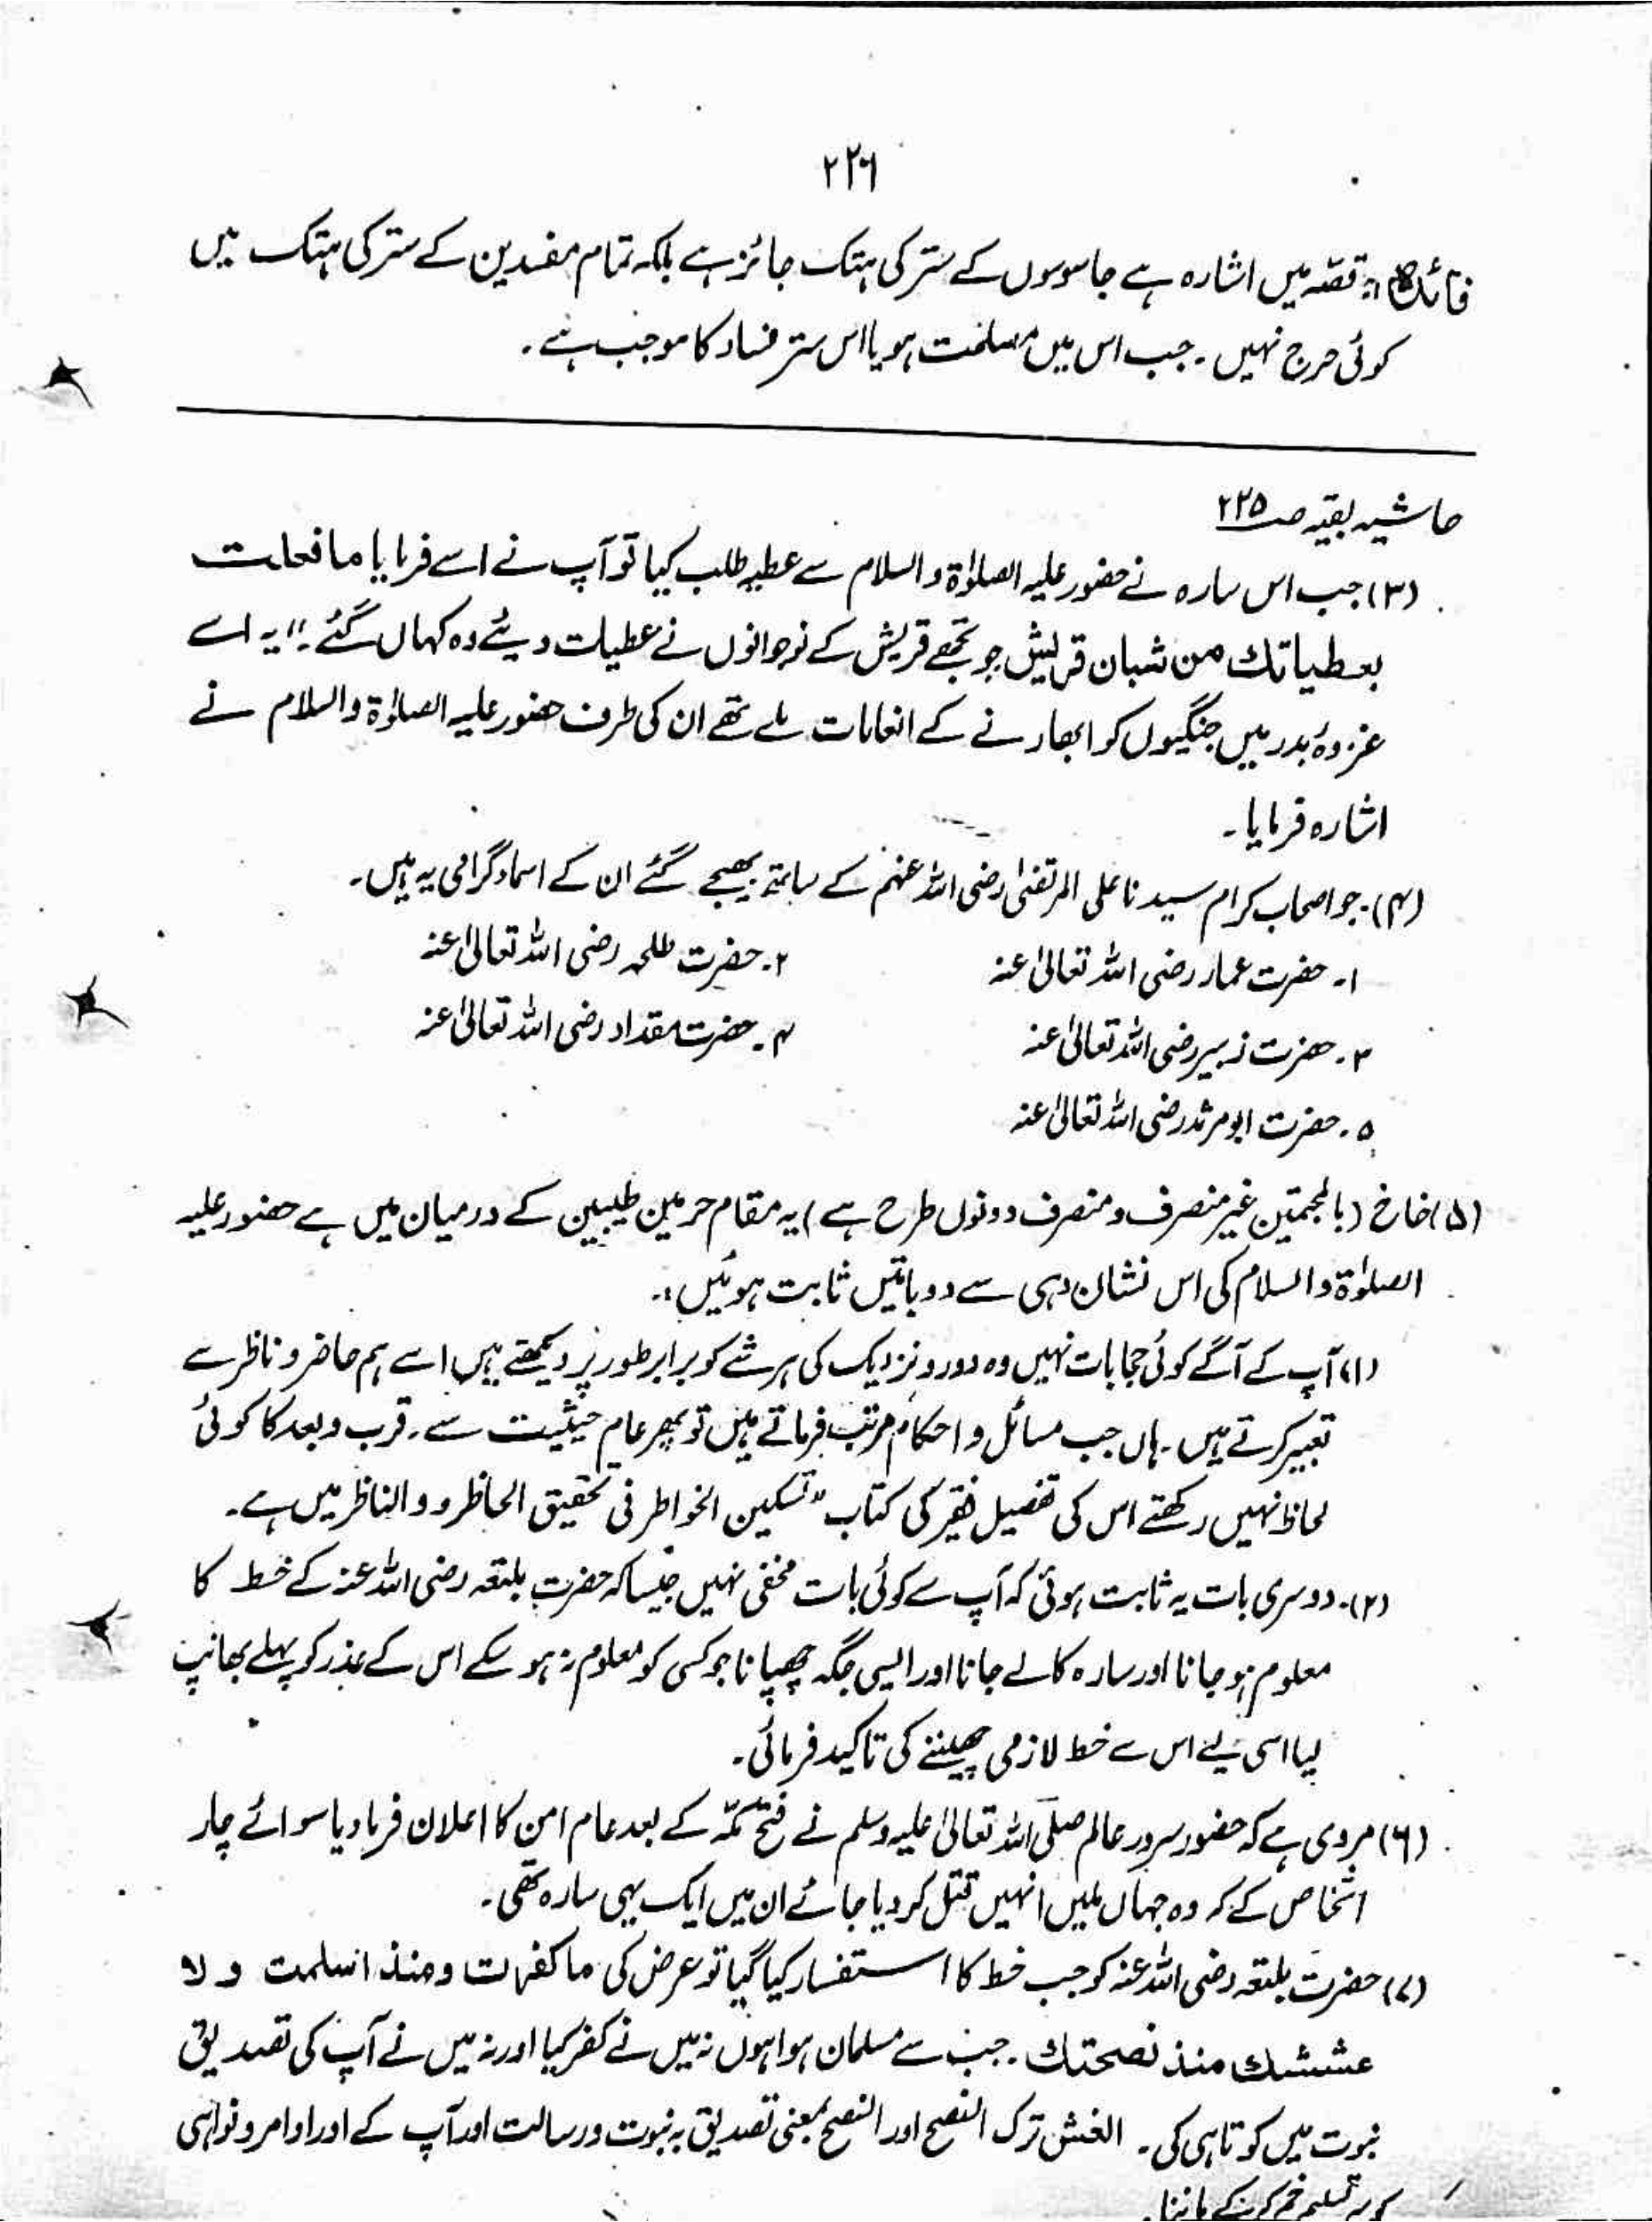 ۲۲۶
فائدہ: قصّہ میں اشارہ ہے جاسوسوں کے ستر کی ہتک جائز ہے بلکہ تمام مفسدین کے ستر کی ہتک میں
کوئی حرج نہیں۔ جب اس میں مصلحت ہو یا اس ستر فساد کا موجب ہے۔
حاشیہ بقیہ صـ ۲۲۵
(۳) جب اس سارہ نے حضور علیہ الصلوٰۃ والسلام سے عطیہ طلب کیا تو آپ نے اسے فرمایا ما فعلت
بعطیاتك من شبان قریش جو تجھے قریش کے نوجوانوں نے عطیات دیئے وہ کہاں گئے۔!! یہ اسے
غزوۂ بدر میں جنگیوں کو ابھارنے کے انعامات ملے تھے ان کی طرف حضور علیہ الصلوٰۃ والسلام نے
اشارہ فرمایا۔
(۴)۔ جو اصحاب کرام سیدنا علی المرتضیٰ رضی اللہ عنہم کے ساتھ بھیجے گئے ان کے اسماء گرامی یہ ہیں۔
۱۔ حضرت عمار رضی اللہ تعالیٰ عنہ ۲۔ حضرت طلحہ رضی اللہ تعالیٰ عنہ
۳۔ حضرت زبیر رضی اللہ تعالیٰ عنہ ۴۔ حضرت مقداد رضی اللہ تعالیٰ عنہ
۵۔ حضرت ابو مرثد رضی اللہ تعالیٰ عنہ
(۵) خاخ (بالمجمتین غیر منصرف و منصرف دونوں طرح ہے) یہ مقام حرمین طیبین کے درمیان میں ہے حضور علیہ
الصلوٰۃ والسلام کی اس نشان دہی سے دو باتیں ثابت ہوئیں:۔
(۱) آپ کے آگے کوئی حجابات نہیں وہ دور و نزدیک کی ہر شے کو برابر طور پر دیکھتے ہیں اسے ہم حاضر و ناظر سے
تعبیر کرتے ہیں۔ ہاں جب مسائل و احکام مرتب فرماتے ہیں تو پھر عام حیثیت سے۔ قرب و بعد کا کوئی
لحاظ نہیں رکھتے اس کی تفصیل فقیر کی کتاب "تسکین الخواطر فی تحقیق الحاظر و والناظر میں ہے۔
(۲)۔ دوسری بات یہ ثابت ہوئی کہ آپ سے کوئی بات مخفی نہیں جیسا کہ حضرت بلتعہ رضی اللہ عنہ کے خط کا
معلوم ہو جانا اور سارہ کا لے جانا اور ایسی جگہ چھپانا جو کسی کو معلوم نہ ہو سکے اس کے عذر کو پہلے بھانپ
لیا اسی لیے اس سے خط لازمی چھیننے کی تاکید فرمائی۔
(۶) مروی ہے کہ حضور سرور عالم صلی اللہ تعالیٰ علیہ وسلم نے فتح مکّہ کے بعد عام امن کا اعلان فرما دیا سوائے چار
اشخاص کے کہ وہ جہاں ملیں انہیں قتل کر دیا جائے ان میں ایک یہی سارہ تھی۔
(۷) حضرت بلتعہ رضی اللہ عنہ کو جب خط کا استفسار کیا گیا تو عرض کی ما کفرت و منذ اسلمت و لا
غششك منذ نصحتك۔ جب سے مسلمان ہوا ہوں نہ میں نے کفر کیا اور نہ میں نے آپ کی تصدیق
نبوت میں کوتاہی کی۔ الغش ترک النصح اور النصح بمعنی تصدیق بہ نبوت و رسالت اور آپ کے اور اوامر و نواہی